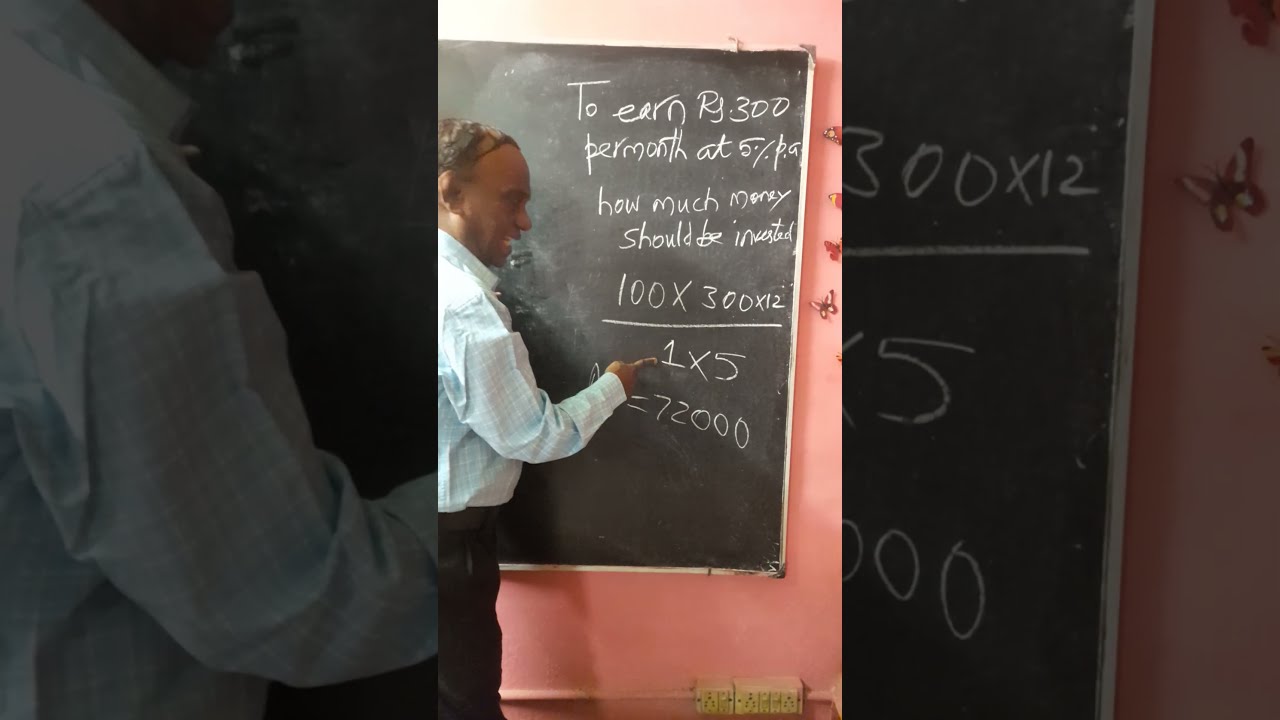 To earn Rs.300
per month at 5% p.a
how much money
should be invested
100 X 300 x 12
1 x 5
= 72000